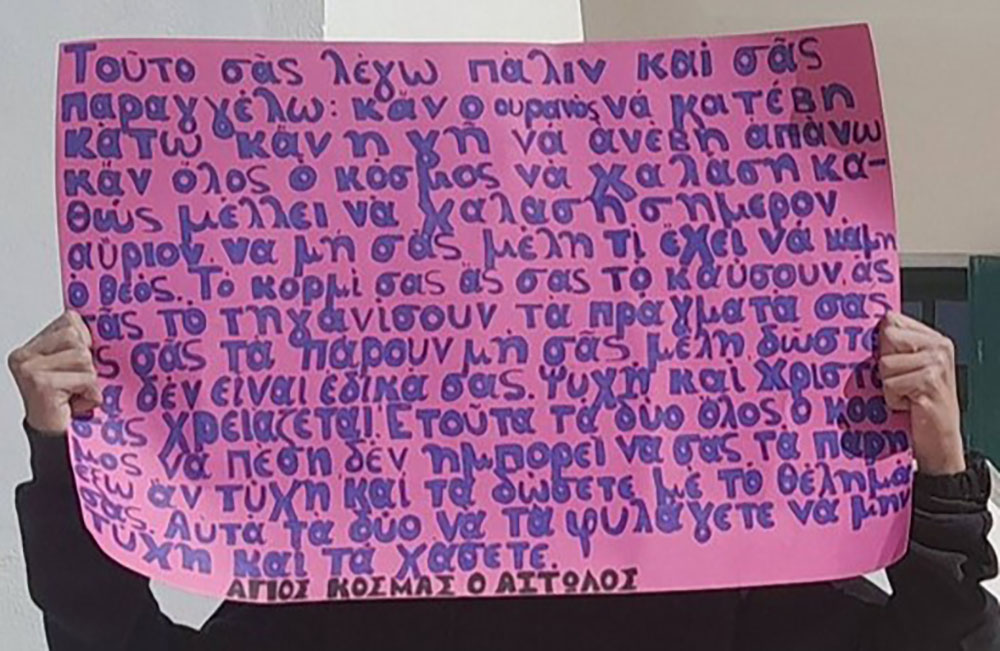 Τοῦτο σᾶς λέγω πάλιν καὶ σᾶς
παραγγέλω: κἂν ὁ ουρανὸς νὰ κατέβη
κάτω κἂν ἡ γῆ νὰ ἀνεβῆ ἀπάνω
κἂν ὅλος ὁ κόσμος νὰ χαλάση κα-
θὼς μέλλει νὰ χαλάση σήμερον,
αὔριον. να μὴ σᾶς μέλη τὶ ἔχει νὰ κάμη
ὁ θεός. Τὸ κορμὶ σας ἂς σας τὸ καύσουν, ἂς
σᾶς τὸ τηγανίσουν, τὰ πράγματά σας
ς σᾶς τὰ πάρουν μὴ σᾶς μέλη. δῶστε
α δὲν εἶναι ἐδικά σας. Ψυχὴ καὶ Χριστὸ
σᾶς χρειάζεται. Ετοῦτα τὰ δύο ὅλος ὁ κόσ
μος νὰ πέση δὲν ἠμπορεῖ νὰ σας τὰ πάρη
ἔξω ἂν τύχη καὶ τὰ δώσετε μὲ τὸ θέλημά
σας. Αὐτὰ τὰ δύο νὰ τὰ φυλάγετε νὰ μὴν
τύχη καὶ τὰ χάσετε.
ΑΓΙΟΣ ΚΟΣΜΑΣ Ο ΑΙΤΩΛΟΣ